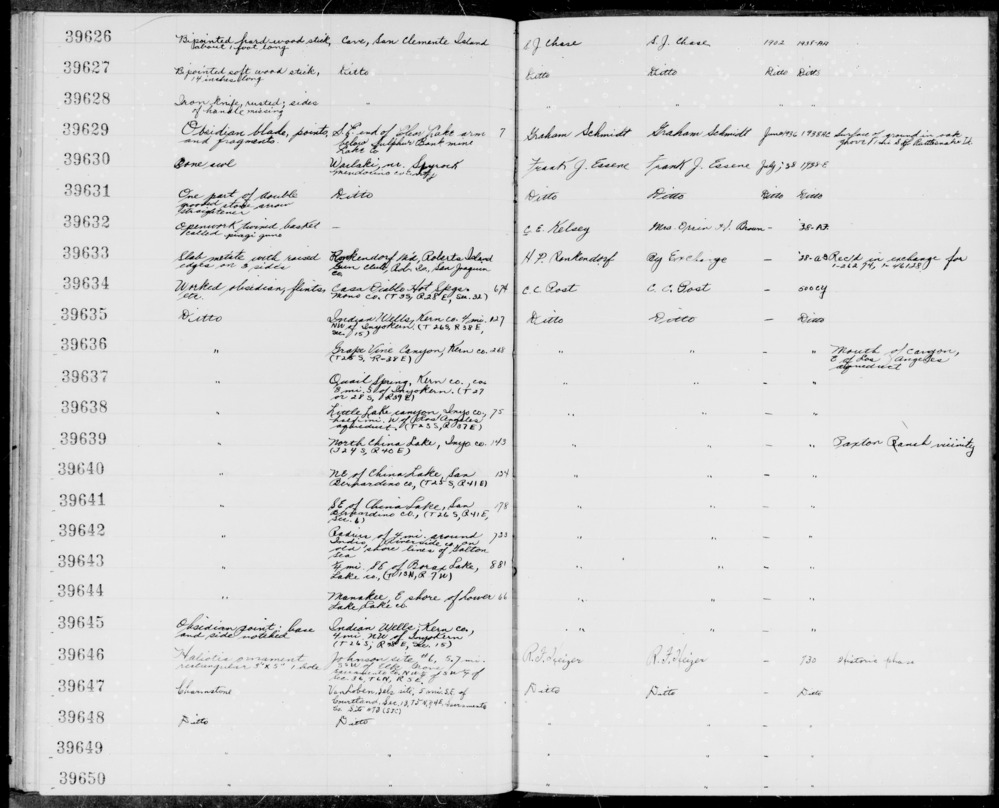 39626 Bipointed hard wood stick, Cave, San Clemente Island S.J. Chase S.J. Chase 1902 1935-AA
about 1 foot long
39627 Bipointed soft wood stick, Ditto Ditto Ditto Ditto Ditto
14 inches long
39628 Iron knife, rusted; sides - " " " "
of handle missing
39629 Obsidian blade, points, S.E. end of Lake arm 7 Graham Schmidt Graham Schmidt June 1936 Surface of ground in oak
and fragments. below Sulphur Bank mine grove
Lake co
39630 Bone awl Wailaki, nr. Spyrock Frank J. Essene Frank J. Essene July; 38
Mendocino county
39631 One part of double Ditto Ditto Ditto Ditto Ditto
grooved stone arrow
straightener
39632 Openwork twined basket - C.E. Kelsey Mrs. Orrin H. Brown -
called
39633 Slab metate with raised Ronkendorf Roberts Island H.P. Ronkendorf By Exchange - Rec'd in exchange for
edges on 3 sides Gun Club, San Joaquin
co
39634 Worked obsidian, flints, Casa Diablo Hot Spgs. 674 C.C. Post C.C. Post - 500CY
etc. Mono co. (T3S, R28E, Sec. 32)
39635 Ditto Indian Wells, Kern co. 4 mi. 127 Ditto Ditto - Ditto
NW of Inyokern. (T26S, R38E,
Sec. 15)
39636 " Grape Vine Canyon, Kern co. 208 " " - " Mouth of canyon,
E of Los Angeles
aqueduct
39637 " Quail Spring, Kern co., ca. " " - "
8 mi. S of Inyokern. (T27
or 28S, R39E)
39638 " Little Lake canyon, Inyo co, 75 " " - "
half mi. W of Los Angeles
aqueduct. (T23S, R37E)
39639 " North China Lake, Inyo co. 143 " " - " Paxton Ranch vicinity
(T24S, R40E)
39640 " NE of China Lake, San 154 " " - "
Bernardino co, (T25S, R41E)
39641 " SE of China Lake, San 178 " " - "
Bernardino co., (T26S, R41E,
Sec. 6)
39642 " Radius of 4 mi. around 723 " " - "
Indio, Riverside co, on
old shore lines of Salton
Sea
39643 " ¼ mi. SE of Borax Lake, 881 " " - "
Lake co, (T13N, R7W)
39644 " Manakee, E shore of Lower 66 " " - "
Lake, Lake co
39645 Obsidian point; base Indian Wells, Kern co, " " - "
and side notched 4 mi NW of Inyokern
(T26S, R38E, Sec. 15)
39646 Haliotis ornament, Johnson site #6, 5.7 mi. R.F. Heizer R.F. Heizer - 730 Historic phase
rectangular 1 hole SW of Elk Grove,
Sacramento co
Sec. 36, T6N, R5E
39647 Charmstone site, 5 mi. SE of Ditto Ditto - Ditto
Courtland, Sec. 13, Sacramento
39648 Ditto Ditto " " - "
39649 " " " " - "
39650 " " " " - "